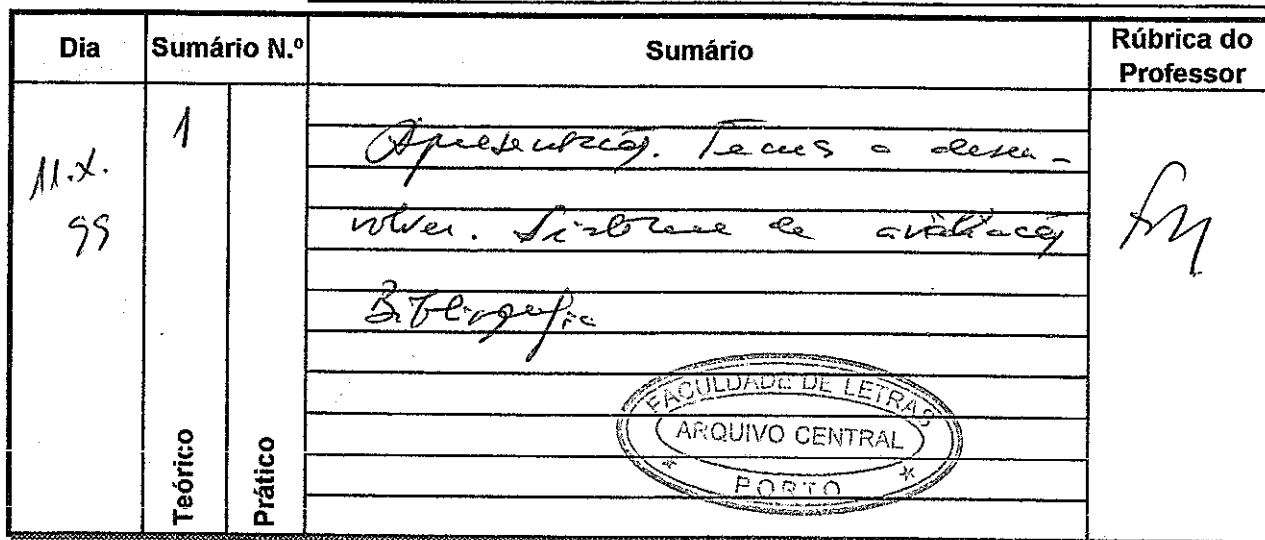 Dia Sumário N.º Sumário Rúbrica do Professor
11.X.99
1
Apresentação. Temas a desen-
volver. Sistema de avaliação
Bibliografia
Teórico
Prático
FACULDADE DE LETRAS
ARQUIVO CENTRAL
PORTO